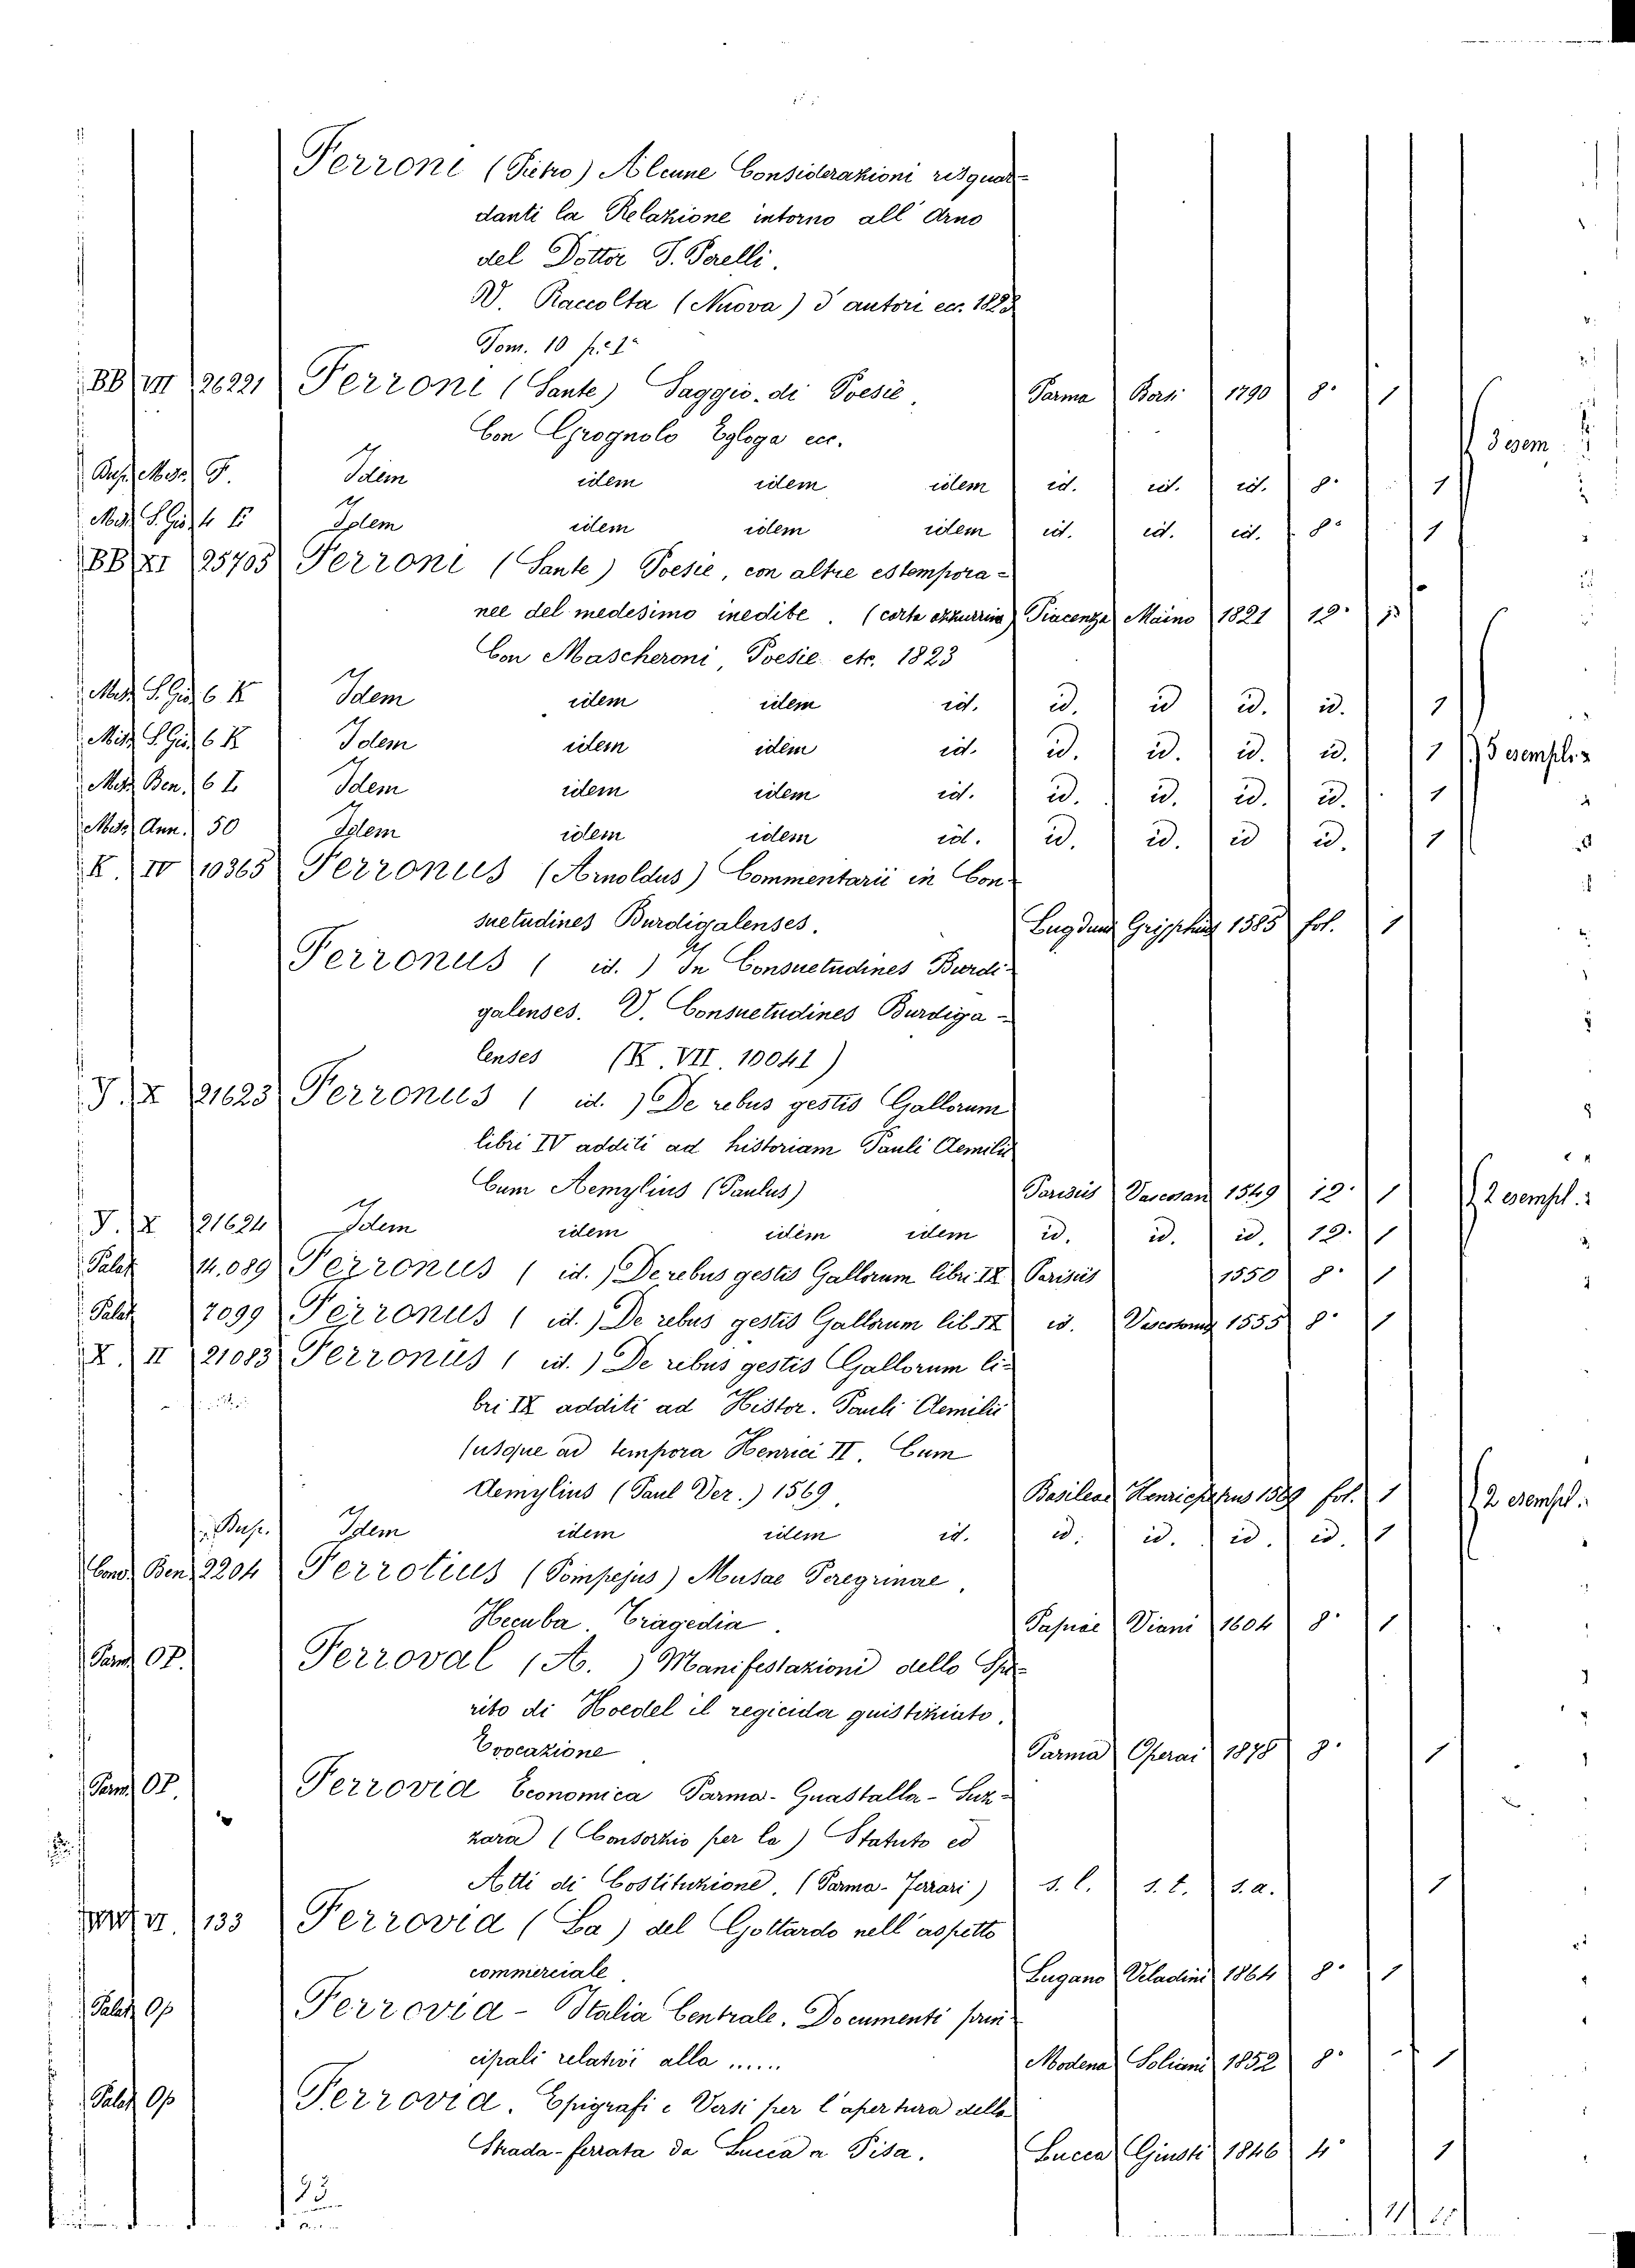 Ferroni (Pietro) Alcune Considerazioni risguar-
danti la Relazione intorno all' Arno
del Dottor T. Perelli.
V. Raccolta (Nuova) d'autori ecc. 1823
Tom. 10 p.e 1a
BB VII 26221 Ferroni (Sante) Saggio di Poesie, Parma 1790 8° 1
Con Grognolo Egloga ecc.
3 esem.
F. Idem idem idem idem id. id. id. 8° 1
Idem idem idem idem id. id. id. 8° 1
BB XI 25705 Ferroni (Sante) Poesie, con altre estempora-
nee del medesimo inedite. (carta azzurrina) Piacenza Maino 1821 12° 1
Con Mascheroni, Poesie etc. 1823
6 K Idem idem idem id. id. id id. id. 1
6 K Idem idem idem id. id. id. id. id. 1 5 esempl.
Ben. 6 I Idem idem idem id. id. id. id. id. 1
Ann. 50 Idem idem idem id. id. id. id id. 1
K. IV 10365 Ferronus (Arnoldus) Commentarii in Con-
suetudines Burdigalenses. Lugduni 1585 fol. 1
Ferronus (id.) In Consuetudines Burdi-
galenses. V. Consuetudines Burdiga-
lenses (K. VII. 10041)
T. X 21623 Ferronus (id.) De rebus gestis Gallorum
libri IV additi ad historiam Pauli Aemilii
Cum Aemylius (Paulus) Parisiis Vascosan 1549 12° 1 2 esempl.
T. X 21624 Idem idem idem idem id. id. id. 12. 1
Palat 14.089 Ferronus (id.) De rebus gestis Gallorum libri IX Parisiis 1550 8° 1
Palat 7099 Ferronus (id.) De rebus gestis Gallorum lib. IX id. 1555 8° 1
X. II 21083 Ferronus (id.) De rebus gestis Gallorum li-
bri IX additi ad Histor. Pauli Aemilii
usque ad tempora Henrici II. Cum
Aemylius (Paul Ver.) 1569. Basileae fol. 1 2 esempl.
Idem idem idem id. id. id. id. id. 1
Ben. 2204 Ferrotius (Pompejus) Musae Peregrinae,
Hecuba. Tragedia. Papiae Viani 1604 8° 1
Parm. OP. Ferroval (A.) Manifestazioni dello Spi-
rito di Hoedel il regicida giustiziato.
Evocazione Parma Operai 1878 8° 1
Parm. OP. Ferrovia Economica Parma-Guastalla-Suz-
zara (Consorzio per la) Statuto ed
Atti di Costituzione. (Parma-Ferrari) s. l. s. t. s. a. 1
VI. 133 Ferrovia (La) del Gottardo nell'aspetto
commerciale. Lugano Veladini 1864 8° 1
Palat Op Ferrovia-Italia Centrale. Documenti prin-
cipali relativi alla ...... Modena Soliani 1852 8° 1
Palat Op Ferrovia. Epigrafi e Versi per l'apertura della
Strada-ferrata da Lucca a Pisa. Lucca Giusti 1846 4° 1